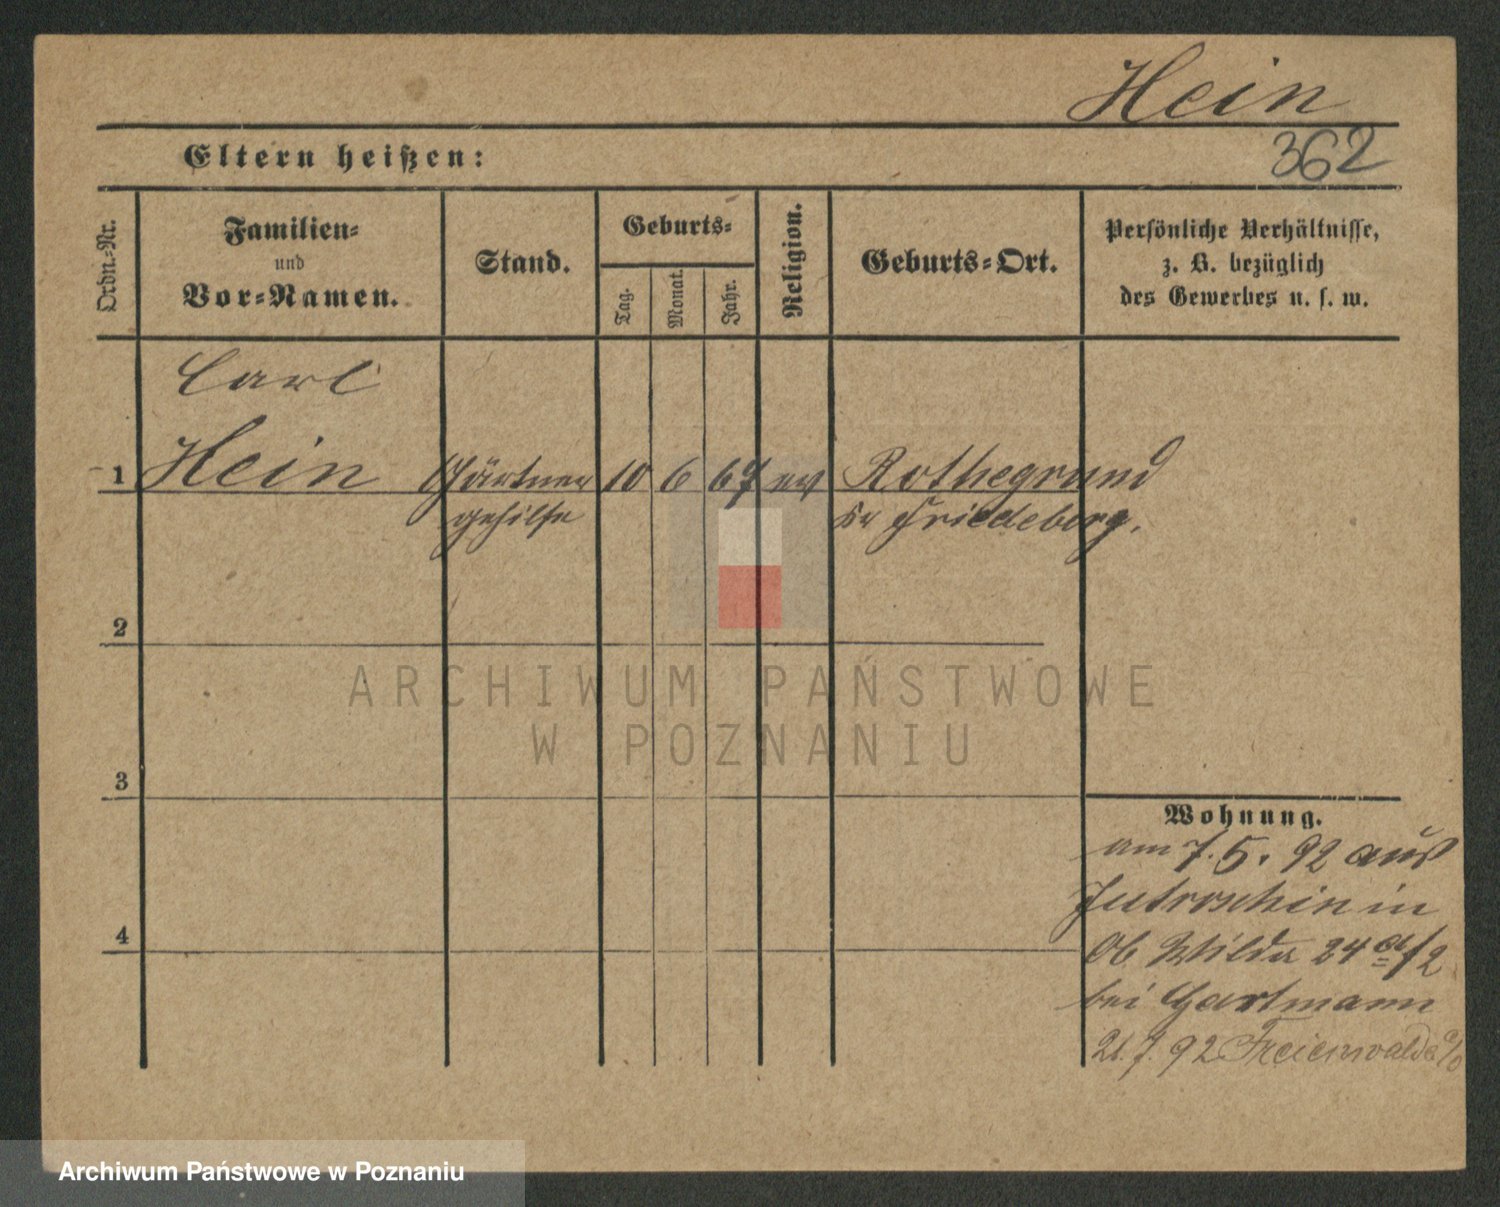 Hein
362
Eltern heißen:
Ordn.-Nr.
Familien-
und
Vor-Namen.
Stand.
Geburts-
Tag.
Monat.
Jahr.
Religion.
Geburts-Ort.
Persönliche Verhältnisse,
z. B. bezüglich
des Gewerbes u. s. w.
Carl
1 Hein Gärtner 10 6 67 ev Rothegrund
gehilfe Kr Friedeberg.
2
3
4
Wohnung.
am 7.5.92 aus
Jutroschin in
Ob Wilda 24
bei Gartmann
21.7.92 Freienwalde a/O
ARCHIWUM PAŃSTWOWE
W POZNANIU
Archiwum Państwowe w Poznaniu